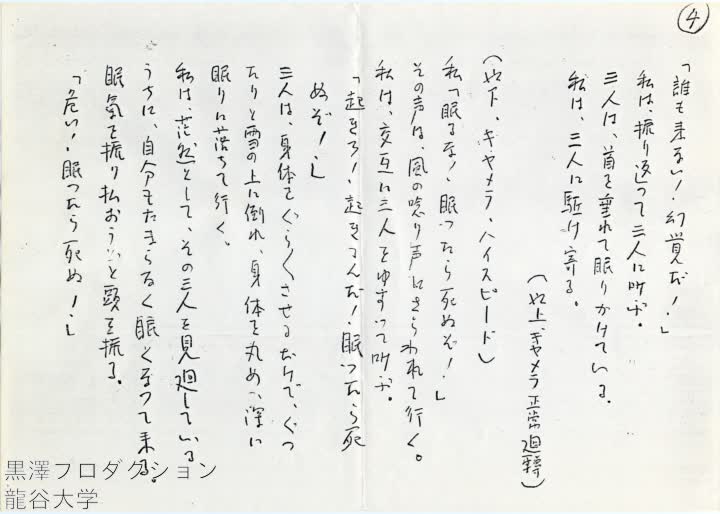 ④
「誰も来ない！幻覚だ！」
私は、振り返って三人に叫ぶ。
三人は、首を垂れて眠りかけている。
私は、三人に駈け寄る。
（以上、キャメラ正常廻轉）
（以下、キャメラ、ハイスピード）
私「眠るな！眠ったら死ぬぞ！」
その声は、風の唸り声にさらわれて行く。
私は、交互に三人をゆすって叫ぶ。
「起きろ！起きるんだ！眠ったら死
ぬぞ！」
三人は、身体をぐらぐらさせるだけで、ぐっ
たりと雪の上に倒れ、身体を丸め、深い
眠りに落ちて行く。
私は、茫然として、その三人を見廻している
うちに、自分もたまらなく眠くなって来る。
眠氣を振り払おうと頭を振る。
「危い！眠ったら死ぬ！」
黒澤プロダクション
龍谷大学